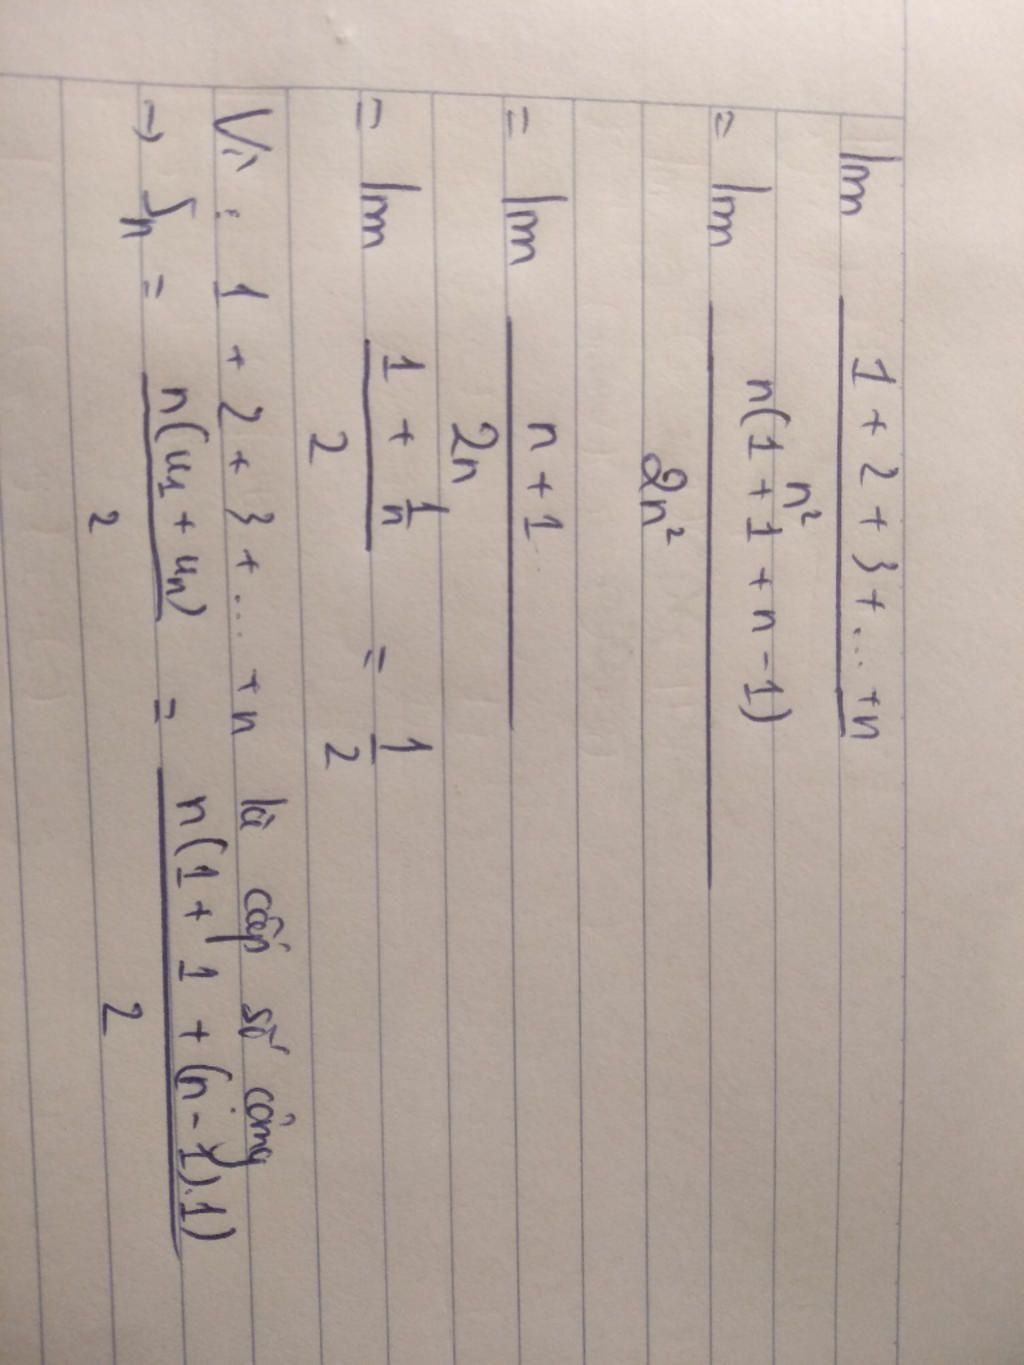 lim 1 + 2 + 3 + ... + n
n²
= lim n(1 + 1 + n - 1)
2n²
= lim n + 1
2n
= lim 1 + 1/n = 1/2
2
Vì : 1 + 2 + 3 + ... + n là cấp số cộng
→ Sn = n(u₁ + uₙ) = n(1 + 1 + (n - 1).1)
2 2